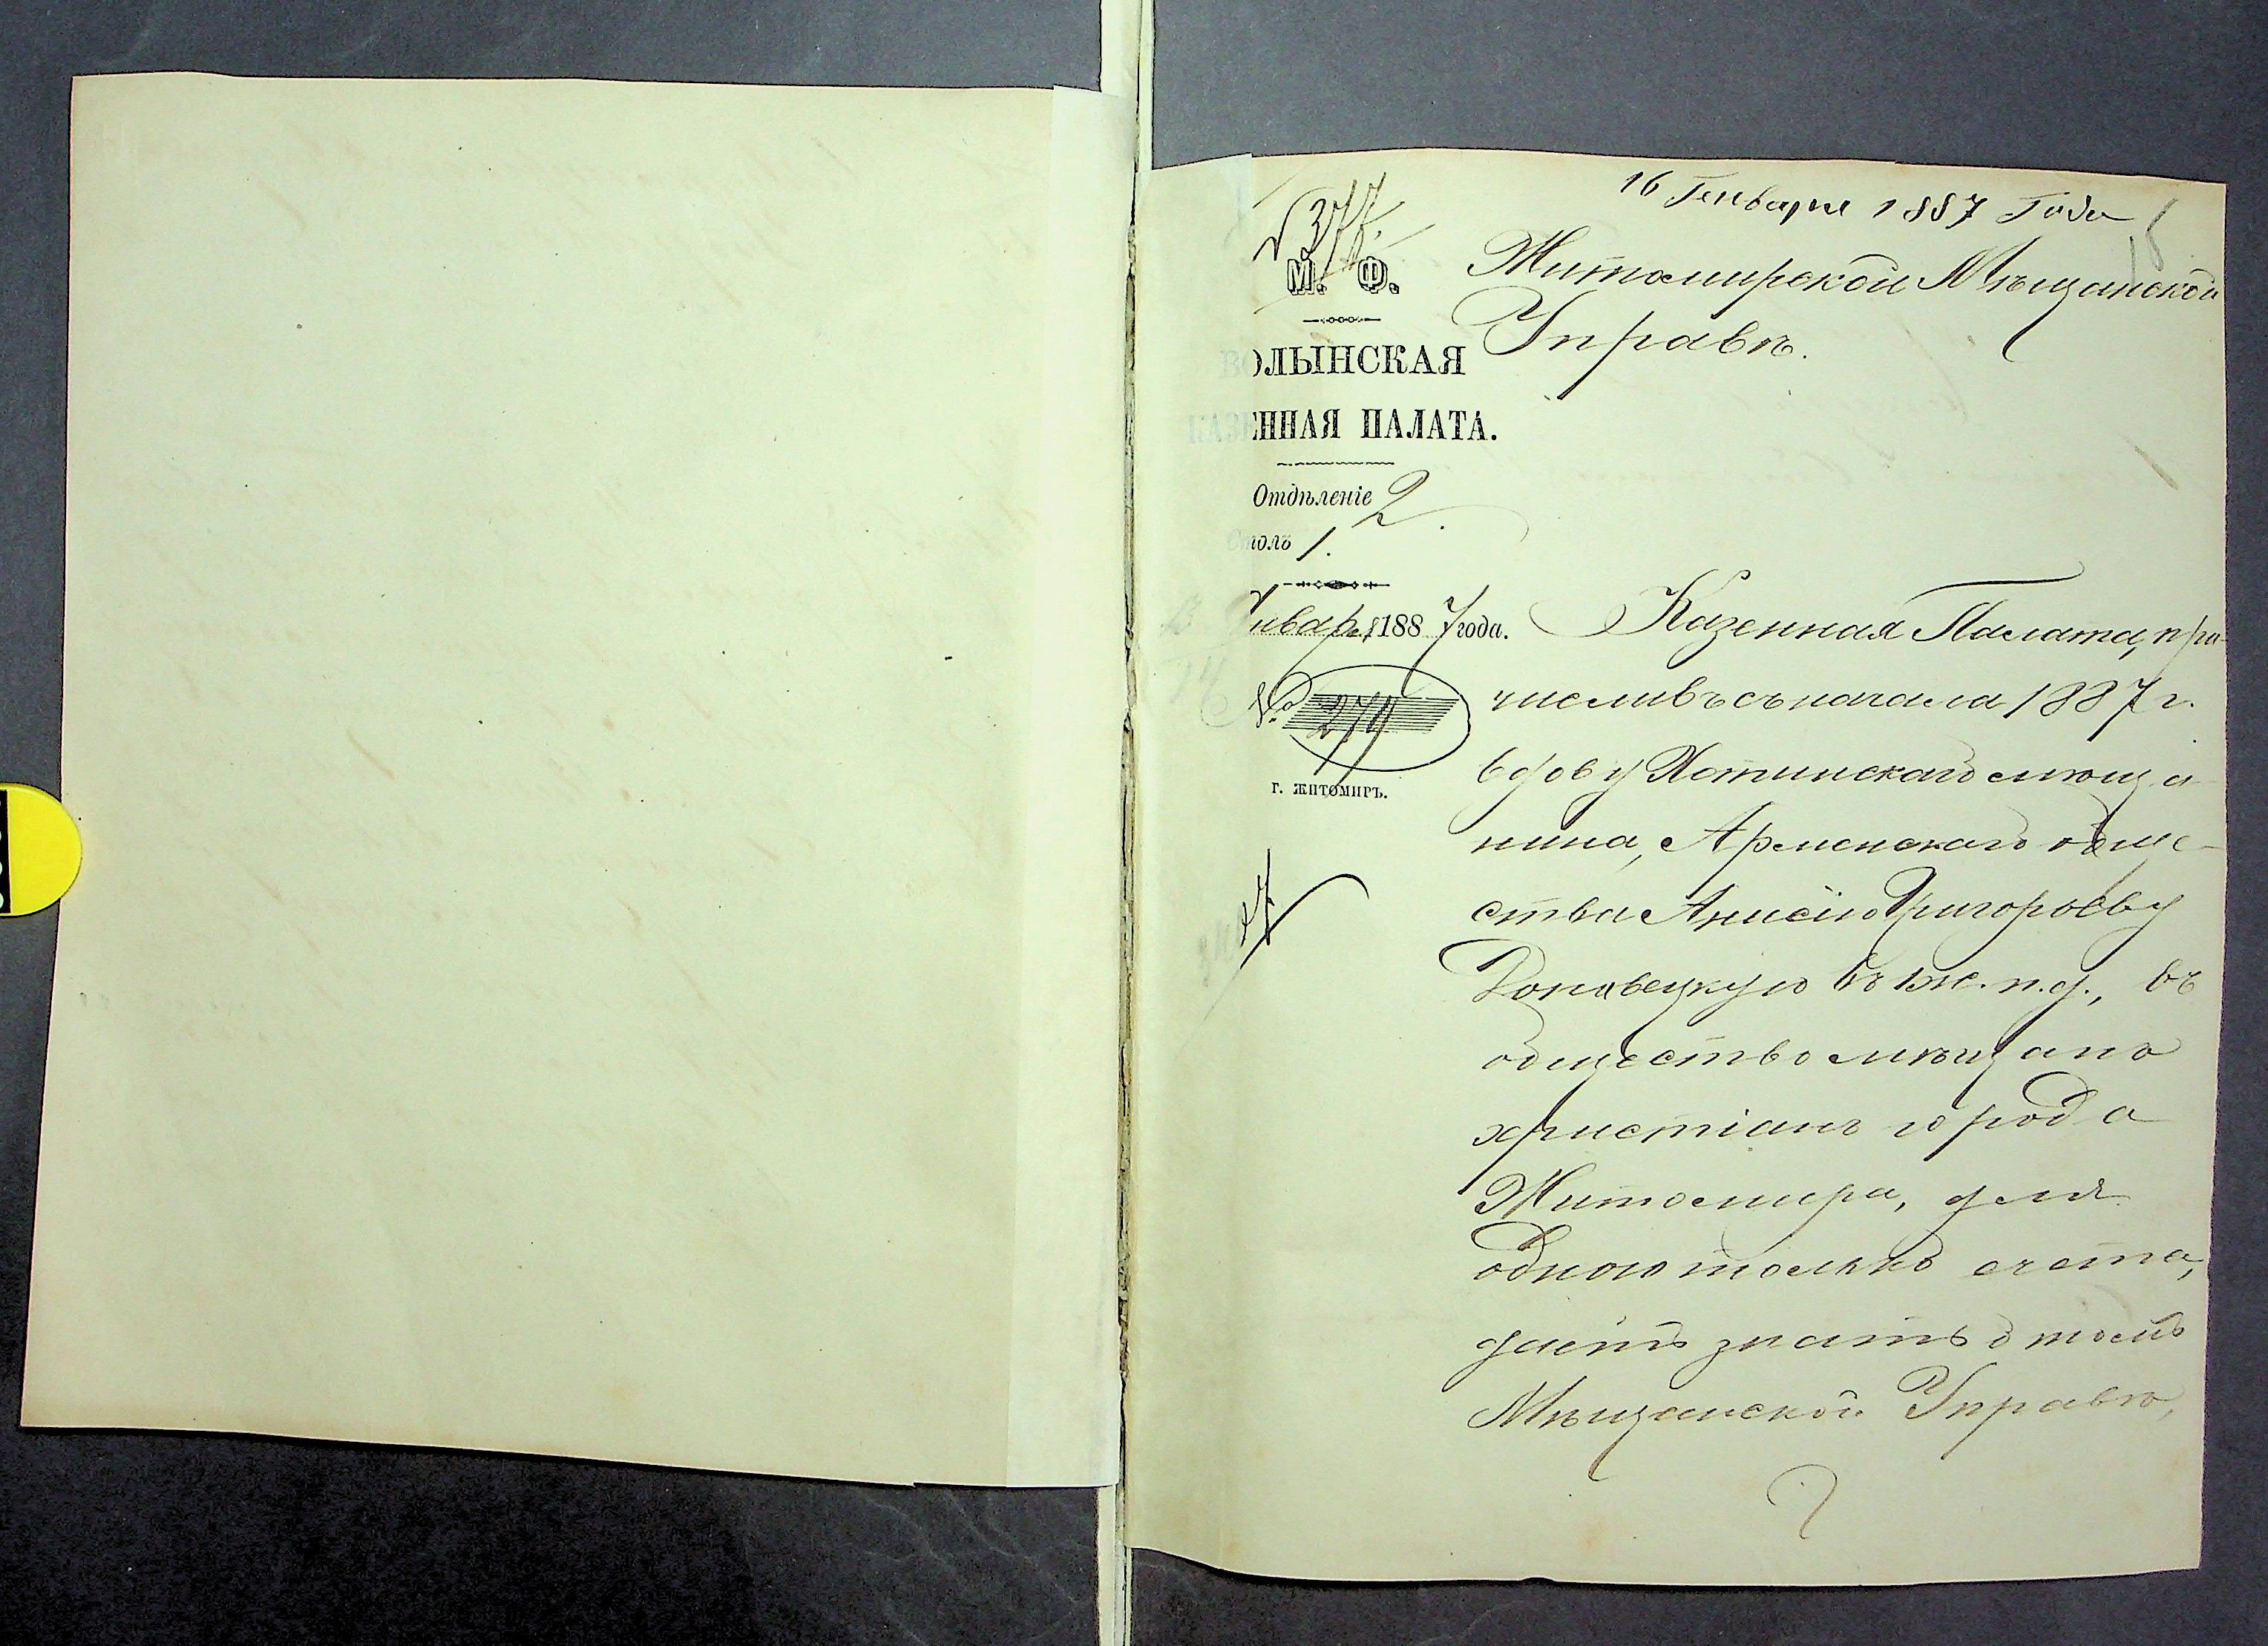 16 Генваря 1887 Года
№ 377.
М. Ф.
Житомирской Мѣщанской
Управѣ.
ВОЛЫНСКАЯ
КАЗЕННАЯ ПАЛАТА.
Отдѣленіе 2.
Столъ 1.
Января 1887 года.
№ 279
Г. ЖИТОМИРЪ.
Казенная Палата, при-
числивъ съ начала 1887 г.
вдову Хотинскаго мѣща-
нина, Армянскаго обще-
ства Анисію Григорьеву
въ ж. п. д., въ
общество мѣщанъ
христіанъ города
Житомира, для
одного только счета,
даетъ знать о томъ
Мѣщанской Управѣ,